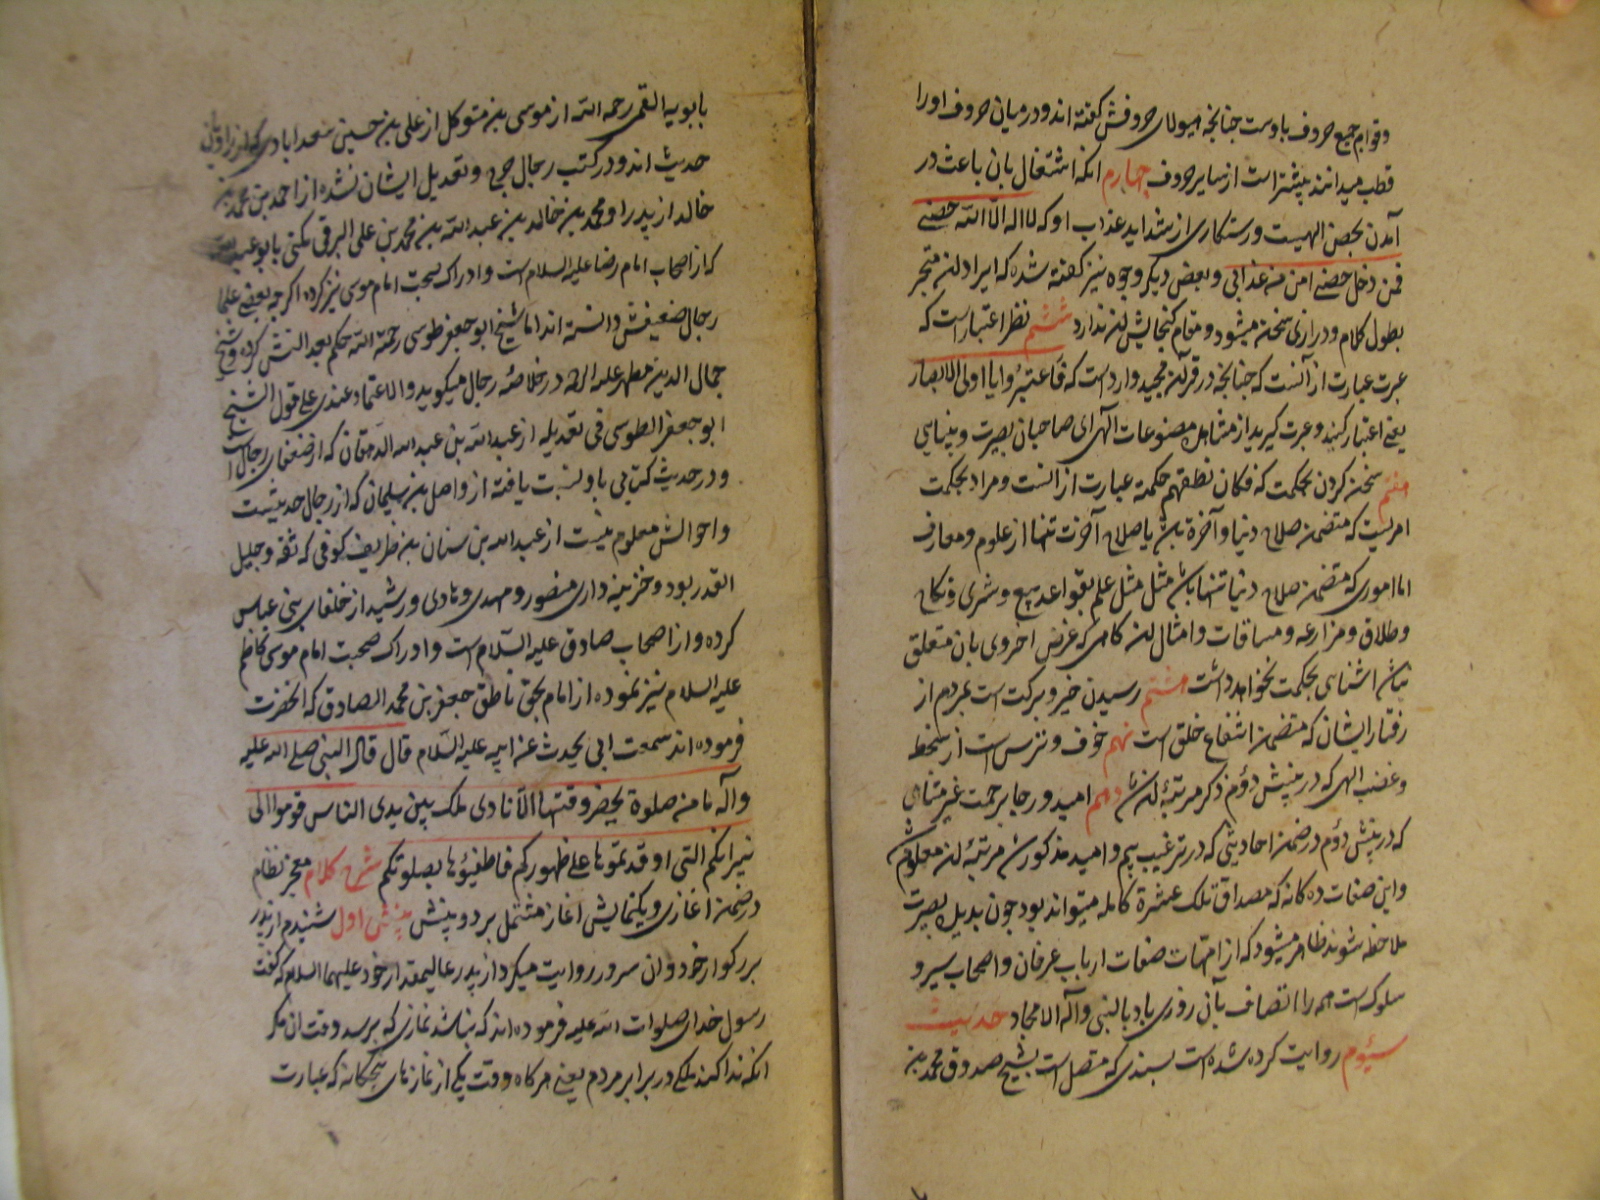 وقوام جمیع حروف باوست چنانچه هیولای حروفش گفته اند و در میان حروف اورا
قطب میدانند بیشتر است از سایر حروف چهارم انکه اشتغال بان باعث در
آمدن بحصن الهیست و رستکاری از شداید عذاب او که لا اله الا الله حصنی
فمن دخل حصنی امن من عذابی و بعض دیگر وجوه نیز گفته شده که ایراد ان منجر
بطول کلام و درازی سخن میشود و مقام کنجایش ان ندارد ششم نظر اعتبار است که
عبرت عبارت از آنست که چنانچه در قرآن مجید وارد است که فاعتبروا یا اولی الابصار
یعنی اعتبار کنید و عبرت کیرید از مشاهده مصنوعات آلهی ای صاحبان بصیرت و بینایی
هفتم سخن کردن بحکمت که فکان نطقهم حکمة عبارت از انست و مراد بحکمت
امریست که متضمن صلاح دنیا و آخرة باشد یا صلاح آخرت تنها از علوم و معارف
اما اموری که متضمن صلاح دنیا تنها باشد مثل علم بقواعد بیع و شری و نکاح
و طلاق و مزارعه و مساقات و امثال ان کاهی که غرض اخروی بان متعلق
نباشد اشنایی بحکمت نخواهد داشت هشتم رسیدن خیر و برکت است بمردم از
رفتار ایشان که متضمن انتفاع خلق است نهم خوف و ترس است از سخط
و غضب الهی که در بینش دوم ذکر مرتبهٔ ان شد دهم امید و رجا برحمت غیر متناهی
که در بینش دوم در ضمن احادیثی که در ترغیب بیم و امید مذکور شد مرتبهٔ ان معلوم شد
و این صفات ده کانه که مصداق تلک عشرة کامله میتواند بود چون بدیدهٔ بصیرت
ملاحظه شوند ظاهر میشود که از امهات صفات ارباب عرفان و اصحاب سیر و
سلوک است همه را اتصاف بآن روزی باد بالنبی و آله الامجاد حدیث
سیوم روایت کرده شده است بسندی که متصل است بشیخ صدوق محمد بن
بابویه القمی رحمه الله از موسی بن متوکل از علی بن حسین سعدابادی که از راویان
حدیث اند و در کتب رجال جرح و تعدیل ایشان نشده از احمد بن محمد بن
خالد از پدر او محمد بن خالد بن عبد الله بن محمد بن علی البرقی مکنی بابو عبد الله
که از اصحاب امام رضا علیه السلام است و ادراک صحبت امام موسی نیز کرده اکرچه بعضی علما
رجال ضعیفش دانسته اند اما شیخ ابو جعفر طوسی رحمة الله حکم بعدالتش کرده و شیخ
جمال الدین مطهر علیه الرحمه در خلاصهٔ رجال میکوید و الاعتماد عندی علی قول الشیخ
ابو جعفر الطوسی فی تعدیله از عبد الله بن عبد الله الدهقان که از ضعفای رجال است
و در حدیث کتابی باو نسبت یافته از واصل بن سلیمان که از رجال حدیثست
و احوالش معلوم نیست از عبد الله بن سنان بن طریف کوفی که ثقه و جلیل
القدر بود و خزینه داری منصور و مهدی و هادی و رشید از خلفای بنی عباس
کرده و از اصحاب صادق علیه السلام است و ادراک صحبت امام موسی کاظم
علیه السلام نیز نموده از امام بحق ناطق جعفر بن محمد الصادق که انحضرت
فرموده اند سمعت ابی یحدث عن ابیه علیه السلام قال قال النبی صلی الله علیه
و آله ما من صلوة یحضر وقتها الا نادی ملک بین یدی الناس قوموا الی
نیرانکم التی اوقدتموها علی ظهورکم فاطفئوها بصلوتکم شرح کلام معجز نظام
در ضمن اغازی و یکنمایش اغاز مشتمل بر دو بینش بینش اول شنیدم از پدر
بزرکوار خود و ان سرور روایت میکرد از پدر عالیمقدار خود علیهما السلام که گفت
رسول خدای صلوات الله علیه فرموده اند که نباشد نمازی که برسد وقت ان مکر
انکه ندا کند ملکی در برابر مردم یعنی هرکاه وقت یکی از نمازهای پنجکانه که عبارت